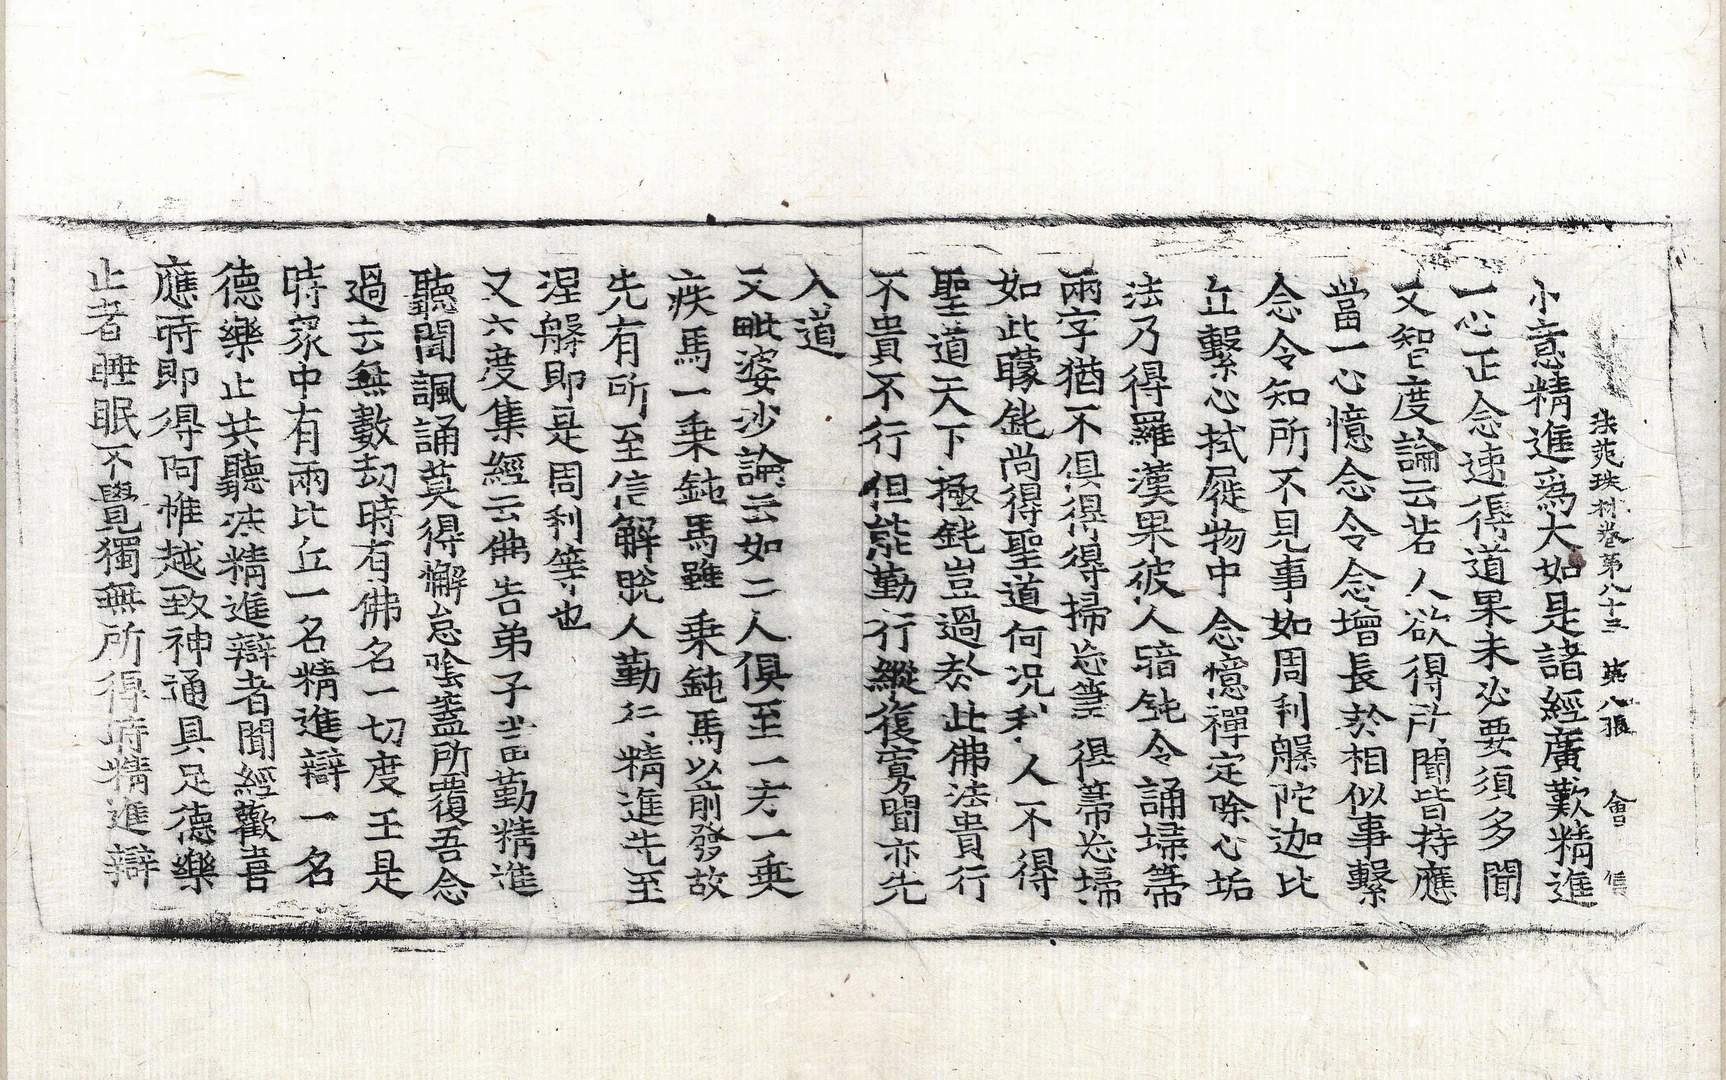 法苑珠林卷第八十三 第八張 會 信
小意精進爲大如是諸經廣歎精進
一心正念速得道果未必要須多聞
又智度論云若人欲得所聞皆持應
當一心憶念令念增長於相似事繫
念令知所不見事如周利槃陀迦比
丘繫心拭屣物中念憶禪定除心垢
法乃得羅漢果彼人暗鈍令誦掃箒
兩字猶不俱得得掃忘箒得箒忘掃
如此矇鈍尚得聖道何況利人不得
聖道天下極鈍豈過於此佛法貴行
不貴不行但能勤行縱復寡聞亦先
入道
又毗婆沙論云如二人俱至一方一乗
疾馬一乗鈍馬雖乗鈍馬以前發故
先有所至信解脫人勤行精進先至
涅槃即是周利等也
又六度集經云佛告弟子當勤精進
聽聞諷誦莫得懈怠陰蓋所覆吾念
過去無數劫時有佛名一切度王是
時衆中有兩比丘一名精進辯一名
德樂止共聽法精進辯者聞經歡喜
應時即得阿惟越致神通具足德樂
止者睡眠不覺獨無所得時精進辯